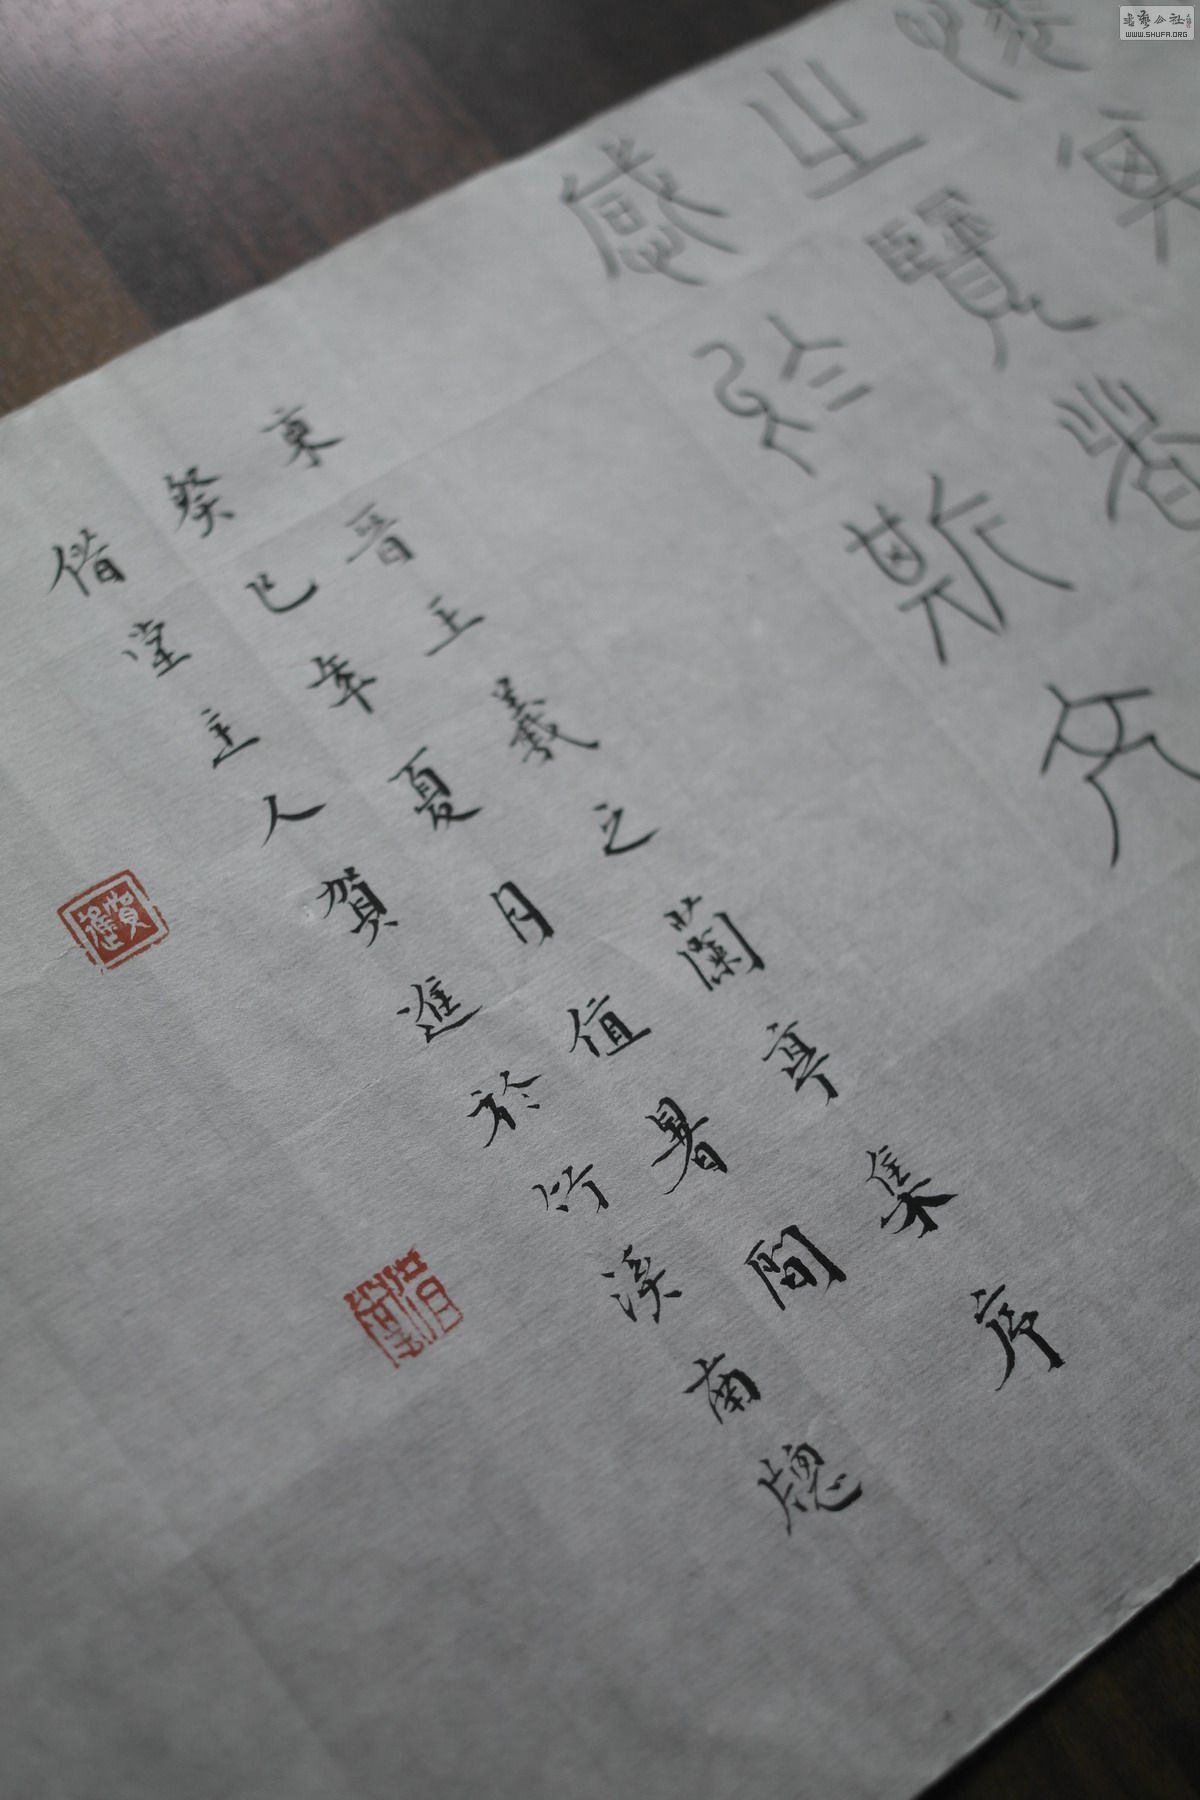 之覽者
感於斯文
東晉王羲之蘭亭集序
癸巳年夏月值暑間
借堂主人賀進於竹溪南牕
賀進
書藝公社
WWW.SHUFA.ORG